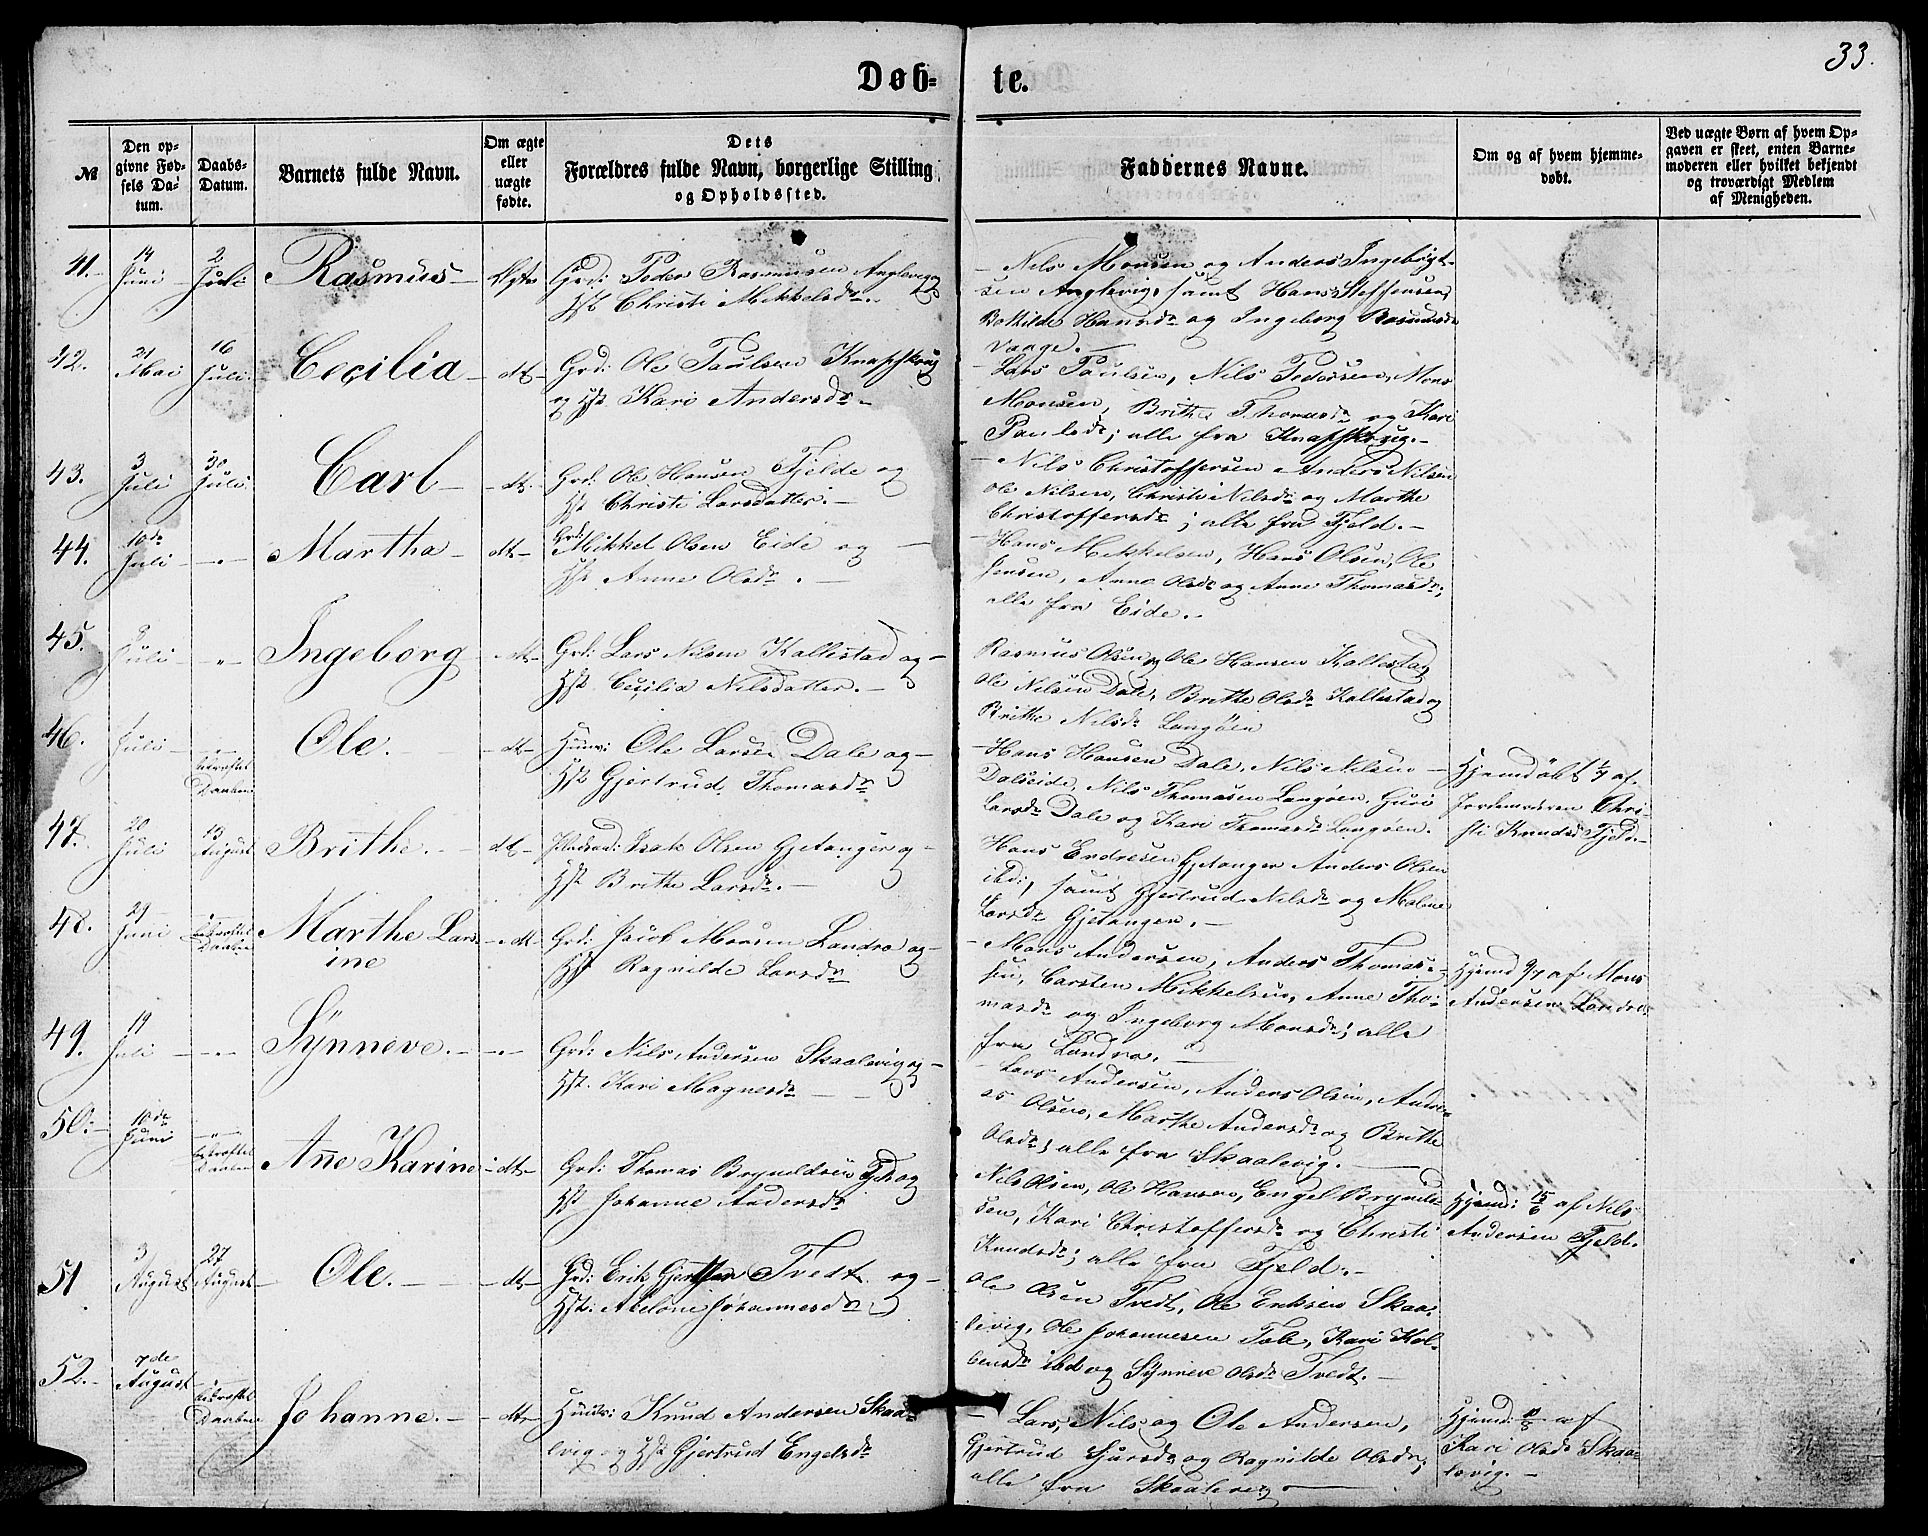 33.
Døb-
te.
№
Den op-
givne Fød-
sels Da-
tum.
Daabs-
Datum.
Barnets fulde Navn.
Om ægte
eller
uægte
fødte.
Dets
Forældres fulde Navn, borgerlige Stilling
og Opholdssted.
Faddernes Navne.
Om og af hvem hjemme-
døbt.
Ved uægte Børn af hvem Op-
gaven er skeet, enten Barne-
moderen eller hvilket bekjendt
og troværdigt Medlem
af Menigheden.
41.
14 Juni
2 Juli
Rasmus
Ægte
Grd: Peder Rasmusen Anglevig og
Hst Christi Mikkelsdr.
Nils Monsen og Anders Ingebrigt-
sen Anglevig, samt Hans Steffensen,
Bothilde Hansdr og Ingeborg Rasmusdr
Vaage.
42.
21 Mai
16 Juli
Cecilia
dt
Grd: Ole Paulsen Knapskrug
og Hst. Kari Andersdr
Lars Paulsen, Nils Pedersen, Mons
Monsen, Brithe Thomasdr og Kari
Paulsdr; alle fra Knapskrug.
43.
3 Juli
30 Juli
Carl
dt
Grd: Ole Hansen Fjelde og
Hst Christi Larsdatter.
Nils Christoffersen Anders Nilsen
Ole Nilsen, Christi Nilsdr og Marthe
Christoffersdr; alle fra Fjeld.
44.
10de Juli
"
Martha
dt
Grd: Mikkel Olsen Eide og
Hst Anne Olsdr.
Hans Mikkelsen, Hans Olsen, Ole
Jensen, Anne Olsdr og Anne Thomasdr;
alle fra Eide.
45.
9 Juli
"
Ingeborg
dt
Grd: Lars Nilsen Kallestad og
Hst. Cecilia Nilsdatter.
Rasmus Olsen og Ole Hansen Kallestad
Ole Nilsen Dale, Brithe Olsdr Kallestad og
Brithe Nilsdr Langøen
46.
Juli
"
bekræftet
Daaben
Ole.
dt
Huusm: Ole Larsen Dale og
Hst Gjertrud Thomasdr
Hans Hansen Dale, Nils Nilsen
Dalseide, Nils Thomasen Langøen, Guri
Larsdr Dale og Kari Thomasdr Langøen.
Hjemdøbt 1/7 af
Jordemoderen Chri-
sti Knudsdr Fjeld.
47.
20 Juli
13 August
Brithe.
dt
Isak Olsen Gjetanger og
Hst Brithe Larsdr.
Hans Endresen Gjetanger Anders Olsen
ibd; samt Gjertrud Nilsdr og Malene
Larsdr Gjetangen.
48.
29 Juni
bekræftet
Daaben
Marthe Lars-
ine
dt
Grd: Jacob Monsen Landro og
Hst Ragnilde Larsdr
Mons Andersen, Anders Thomas-
sen, Carsten Mikkelsen, Anne Tho-
masdr og Ingeborg Monsdr; alle
fra Landro.
Hjemd 9/7 af Mons
Andersen Landro
49.
19 Juli
"
Synneve.
"
Grd: Nils Andersen Skaalevig og
Hst. Kari Magnesdr
Lars Andersen, Anders Olsen, Andre-
as Olsen, Marthe Andersdr og Brithe
Olsdr; alle fra Skaalevig.
50.
10de Juni
"
bekræftet
Daaben
Anne Karine
dt
Grd: Thomas Brynildsen Fjeld og
Hst Johanne Andersdr
Nils Olsen, Ole Hansen, Engel Brynild-
sen, Kari Christoffersdr og Christi
Knudsdr; alle fra Fjeld.
Hjemd: 15/6 af Nils
Andersen Fjeld.
51
3 August
27 August
Ole.
dt
Grd: Erik Gjertsen Tvedt og
Hst: Abeloni Johannesdr
Ole Olsen Tvedt, Ole Eriksen Skaa-
levig, Ole Johannesen Tole, Kari Kol-
bensdr ibd og Synneve Olsdr Tvedt.
52.
7de August
"
bekræftet
Daaben
Johanne.
dt
Huusm: Knud Andersen Skaa-
levig og Hst Gjertrud Engelsdr
Lars, Nils og Ole Andersen,
Gjertrud Sjursdr og Ragnilde Olsdr;
alle fra Skaalevig
Hjemd: 10/8 af
Kari Olsdr Skaa-
levig.